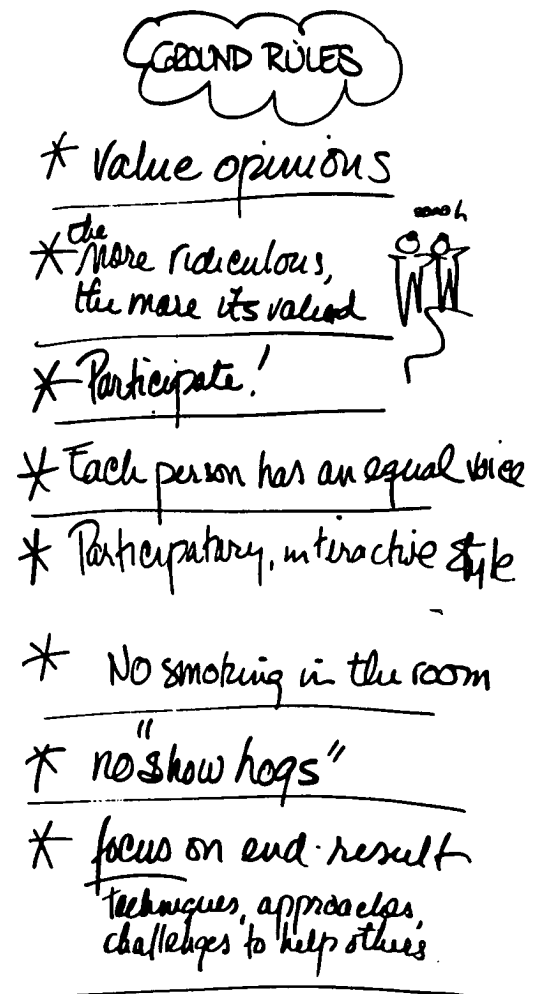 GROUND RULES
* Value opinions
* the More ridiculous,
the more its valued
* Participate!
* Each person has an equal voice
* Participatory, interactive style
* No smoking in the room
* no "show hogs"
* focus on end-result
techniques, approaches,
challenges to help others